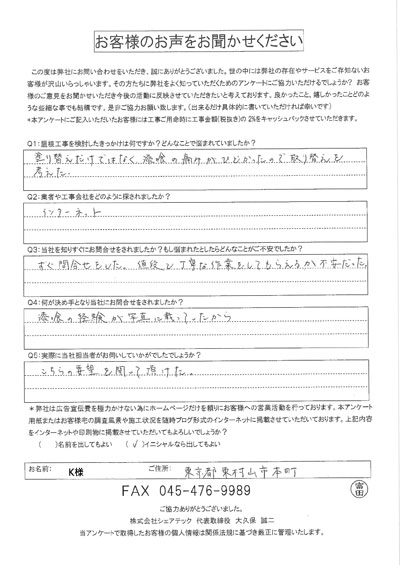 お客様のお声をお聞かせください
この度は弊社にお問い合わせをいただき、誠にありがとうございました。世の中には弊社の存在やサービスをご存知ないお
客様が沢山いらっしゃいます。その方たちに弊社をよく知っていただくためのアンケートにご協力いただけるでしょうか? お
客様のご意見をお聞かせいただき今後の活動に反映させていただきたいと考えております。良かったこと、嬉しかったことどのよ
うな些細な事でも結構です。是非ご協力お願い致します。(出来るだけ具体的に書いていただければ幸いです)
*本アンケートにご記入いただいたお客様には工事ご用命時に工事金額(税抜き)の2%をキャッシュバックさせていただきます。
Q1:屋根工事を検討したきっかけは何ですか?どんなことで悩まれていましたか?
塗り替えだけではなく漆喰の痛みがひどかったので取り替えを
考えた.
Q2:業者や工事会社をどのように探されましたか?
インターネット
Q3:当社を知りすぐにお問合せをされましたか?もし悩まれたとしたらどんなことがご不安でしたか?
すぐ問合せをした。値段と丁寧な作業をしてもらえるか不安だった.
Q4:何が決め手となり当社にお問合せをされましたか?
漆喰の経験が写真に載っていたから
Q5:実際に当社担当者がお伺いしていかがでしたでしょうか?
こちらの要望を聞って頂けた.
*弊社は広告宣伝費を極力かけない為にホームページだけを頼りにお客様への営業活動を行っております。本アンケート
用紙またはお客様宅の調査風景や施工状況を随時ブログ形式のインターネットに掲載させていただいております。上記内容
をインターネットや印刷物に掲載させていただいてもよろしいでしょうか?
( )名前を出してもよい (✓)イニシャルなら出してもよい
お名前: K様 ご住所: 東京都東村山市本町
FAX 045-476-9989 富田
ご協力ありがとうございました。
株式会社シェアテック 代表取締役 大久保 誠二
当アンケートで取得したお客様の個人情報は関係法規に基づき厳正に管理いたします。